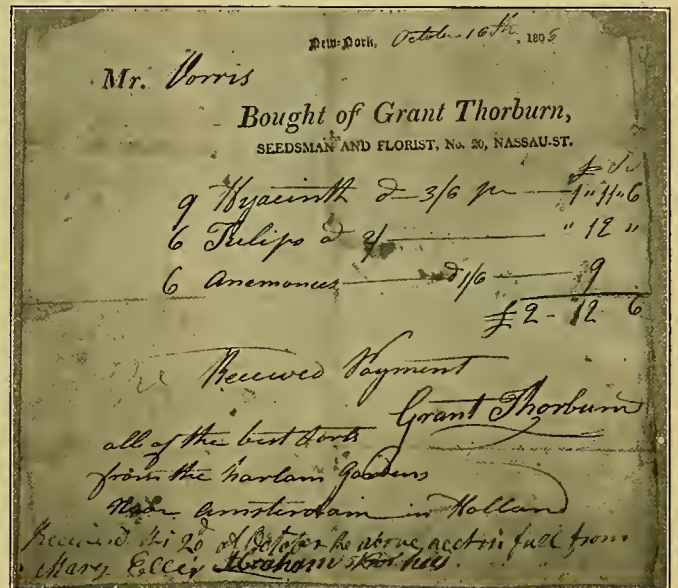 New-York, October 16th, 1805
Mr. Vorris
Bought of Grant Thorburn,
SEEDSMAN AND FLORIST, No. 20, NASSAU-ST.
£ S
9 Hyacinth a 3/6 pr 1 " 11 " 6
6 Tulips a 2/ " 12 "
6 anemones a 1/6 9
£ 2 - 12 6
Received Payment
Grant Thorburn
all of the best sorts
from the harlam Gardens
Near amsterdam in Holland
Received 20d of October the above acct in full from
Mary Ellen Abraham